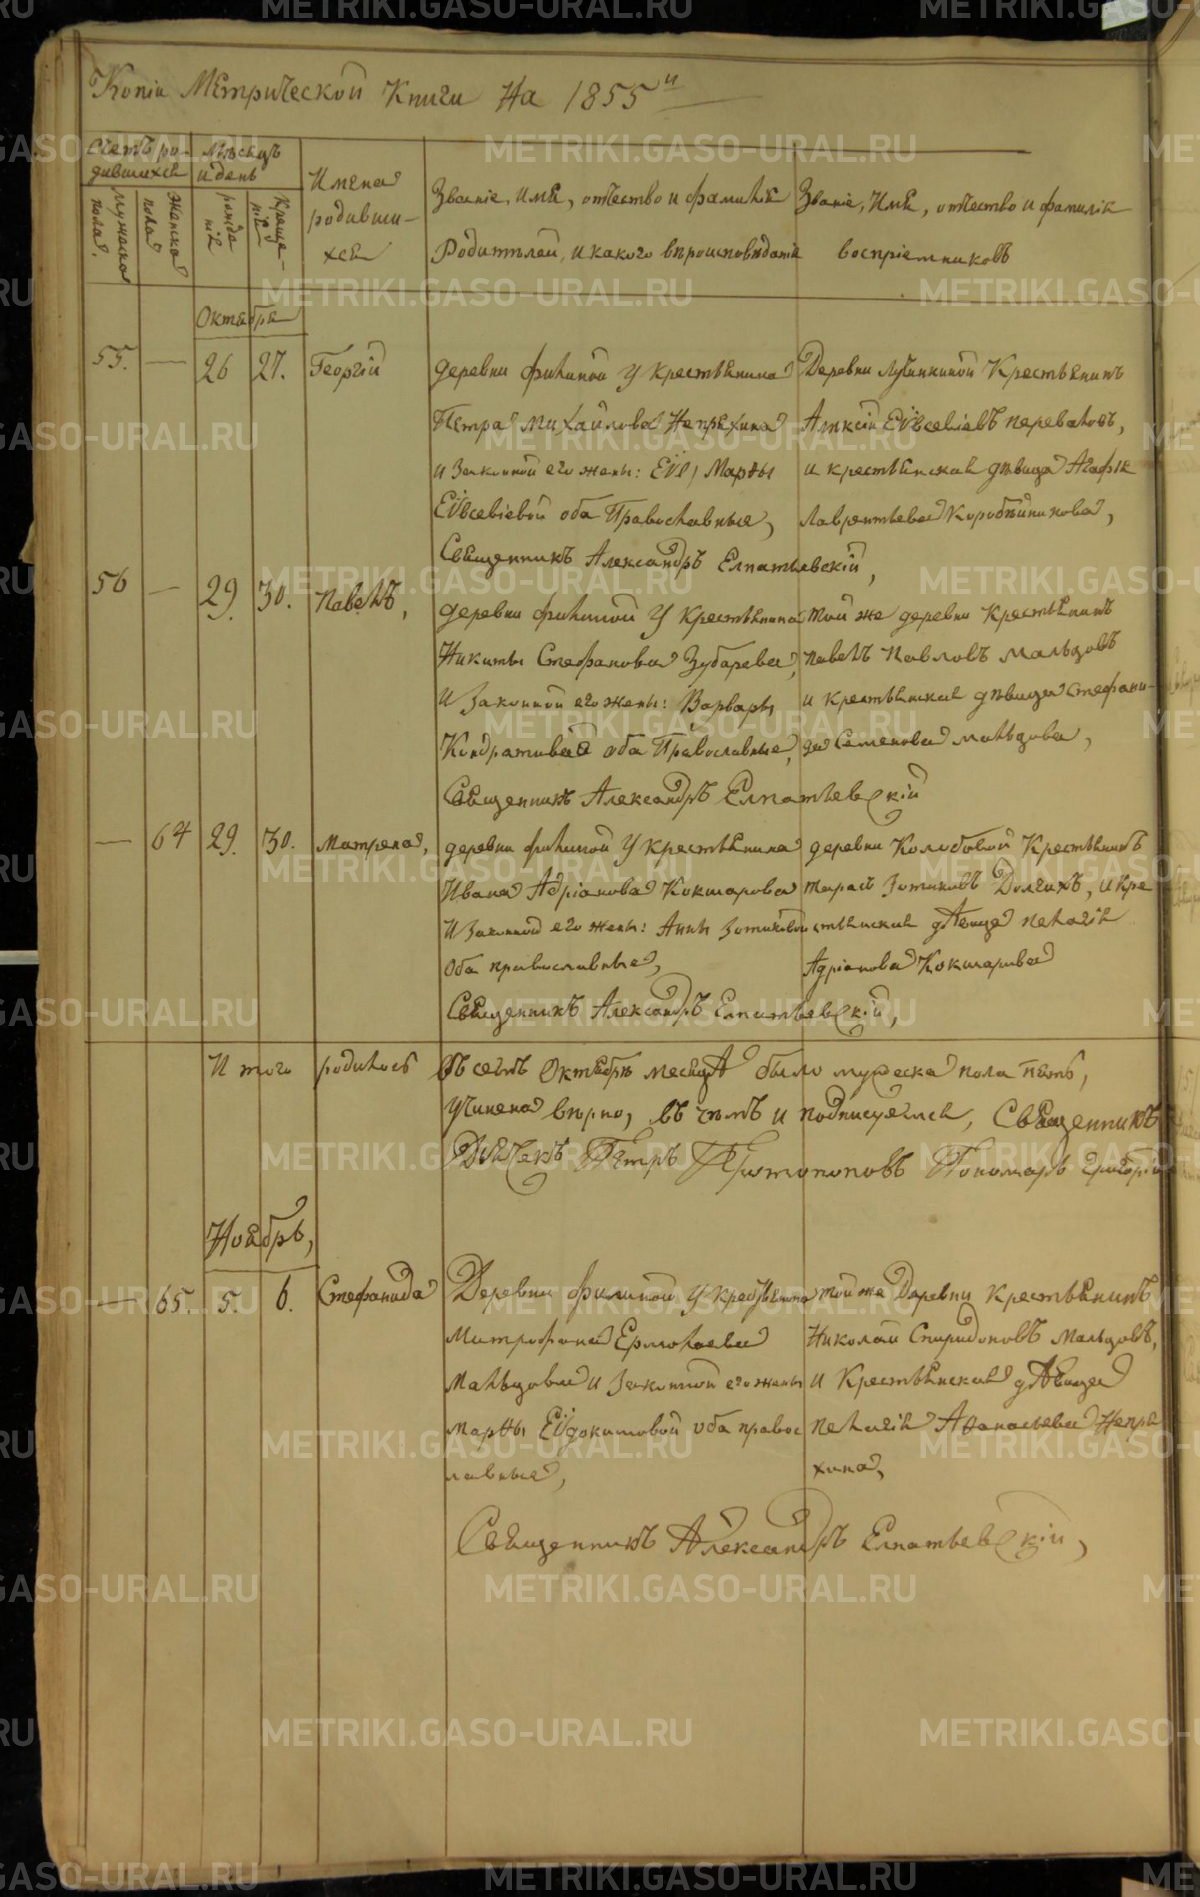 Копія Метрической Книги На 1855й
Счетъ родившихся
Мѣсяцъ и день
Имена родившихся
Званіе, Имя, отчество и фамилія Родителей, и какого вѣроисповѣданія
Званіе, Имя, отчество и фамилія воспріемниковъ
мужеска пола.
женска пола
рожденія
крещенія
Октября
55. — 26 27. Георгій
деревни Филиной У крестьянина
Петра Михайлова Непряхина
и Законной его жены: Марѳы
Евѵсевіевой оба Православные,
Священникъ Александръ Елпатьевскій,
Деревни Лучинкиной Крестьянинъ
Алексій Евѵсевіевъ Переваловъ,
и крестьянская дѣвица Агафья
Лаврентьева Коробейникова,
56 — 29. 30. Павелъ,
деревни Филиной У Крестьянина
Никиты Стефанова Зубарева,
И Законной его жены: Варвары
Кондратиевой оба Православные,
Священникъ Александръ Елпатьевскій
той же деревни Крестьянинъ
Павелъ Павловъ Мальцовъ
и крестьянская дѣвица Стефани-
да Семенова Мальцова,
— 64 29. 30. Матрена,
деревни Филиной У крестьянина
Ивана Адріанова Кокшарова
И Законной его жены: Анны Зотиковой
Оба православные,
Священникъ Александръ Елпатьевскій,
деревни Колобовой Крестьянинъ
Тарасъ Зотиковъ Долгихъ, и кре
стьянская дѣвица Пелагія
Адріанова Кокшарова
И того родилось Въ семъ Октябрѣ месяцѣ было мужеска пола пять,
Учинена вѣрно, въ чемъ и подписуемся, Священникъ
Дьячекъ Петръ Протопоповъ Пономарь Григорій
Ноябрь,
— 65. 5. 6. Стефанида
Деревни Филиной У крестьянина
Митрофана Ермолаева
Мальцова и Законной его жены
Марѳы Евѵдокимовой оба правос
лавные,
той же Деревни Крестьянинъ
Николай Спиридоновъ Мальцовъ,
и Крестьянская дѣвица
Пелагія Афанасьева Непря
хина,
Священникъ Александръ Елпатьевскій,
METRIKI.GASO-URAL.RU